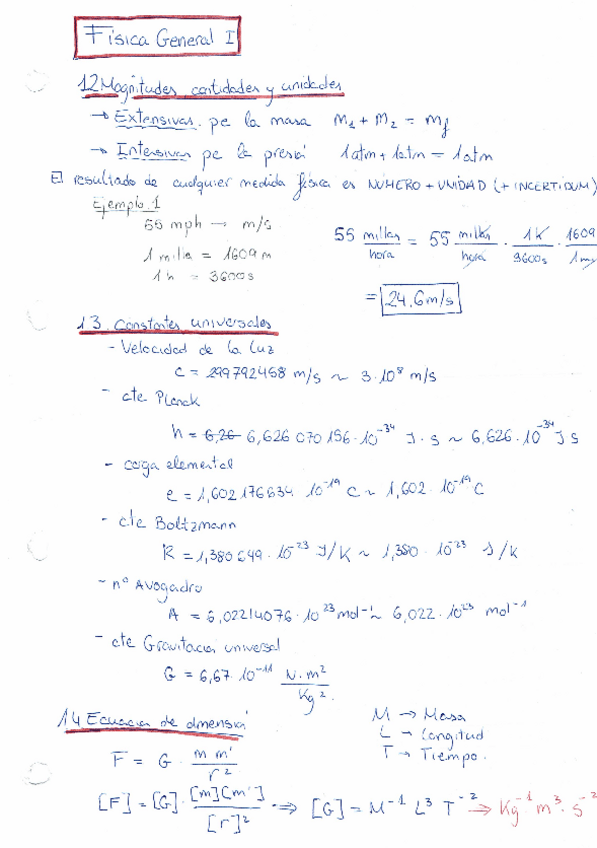 Física General I
1.2 Magnitudes cantidades y unidades
→ Extensivas. pe la masa m₁ + m₂ = mf
→ Intensivas pe la presión 1atm + 1atm = 1atm
El resultado de cualquier medida física es NÚMERO + UNIDAD (+ INCERTIDUM)
Ejemplo 1
55 mph → m/s
1 milla = 1609 m
1 h = 3600s
55 millas/hora = 55 millas/hora · 1h/3600s · 1609
= 24,6 m/s
1.3 Constantes universales
- Velocidad de la luz
c = 299792458 m/s ~ 3·10⁸ m/s
- cte Planck
h = 6,26 6,626 070 156·10⁻³⁴ J·s ~ 6,626·10⁻³⁴ J s
- carga elemental
e = 1,602176634 10⁻¹⁹ C ~ 1,602·10⁻¹⁹ C
- cte Boltzmann
K = 1,380649·10⁻²³ J/K ~ 1,380·10⁻²³ J/K
- nº Avogadro
A = 6,02214076·10²³ mol⁻¹ ~ 6,022·10²³ mol⁻¹
- cte Gravitación universal
G = 6,67 10⁻¹¹ N·m²/Kg².
1.4 Ecuación de dimensión
M → Masa
L → Longitud
T → Tiempo.
F = G · m m'/r²
[F] = [G]·[m][m']/[r]² ⇒ [G] = M⁻¹ L³ T⁻² ⇒ Kg⁻¹ m³·s⁻²